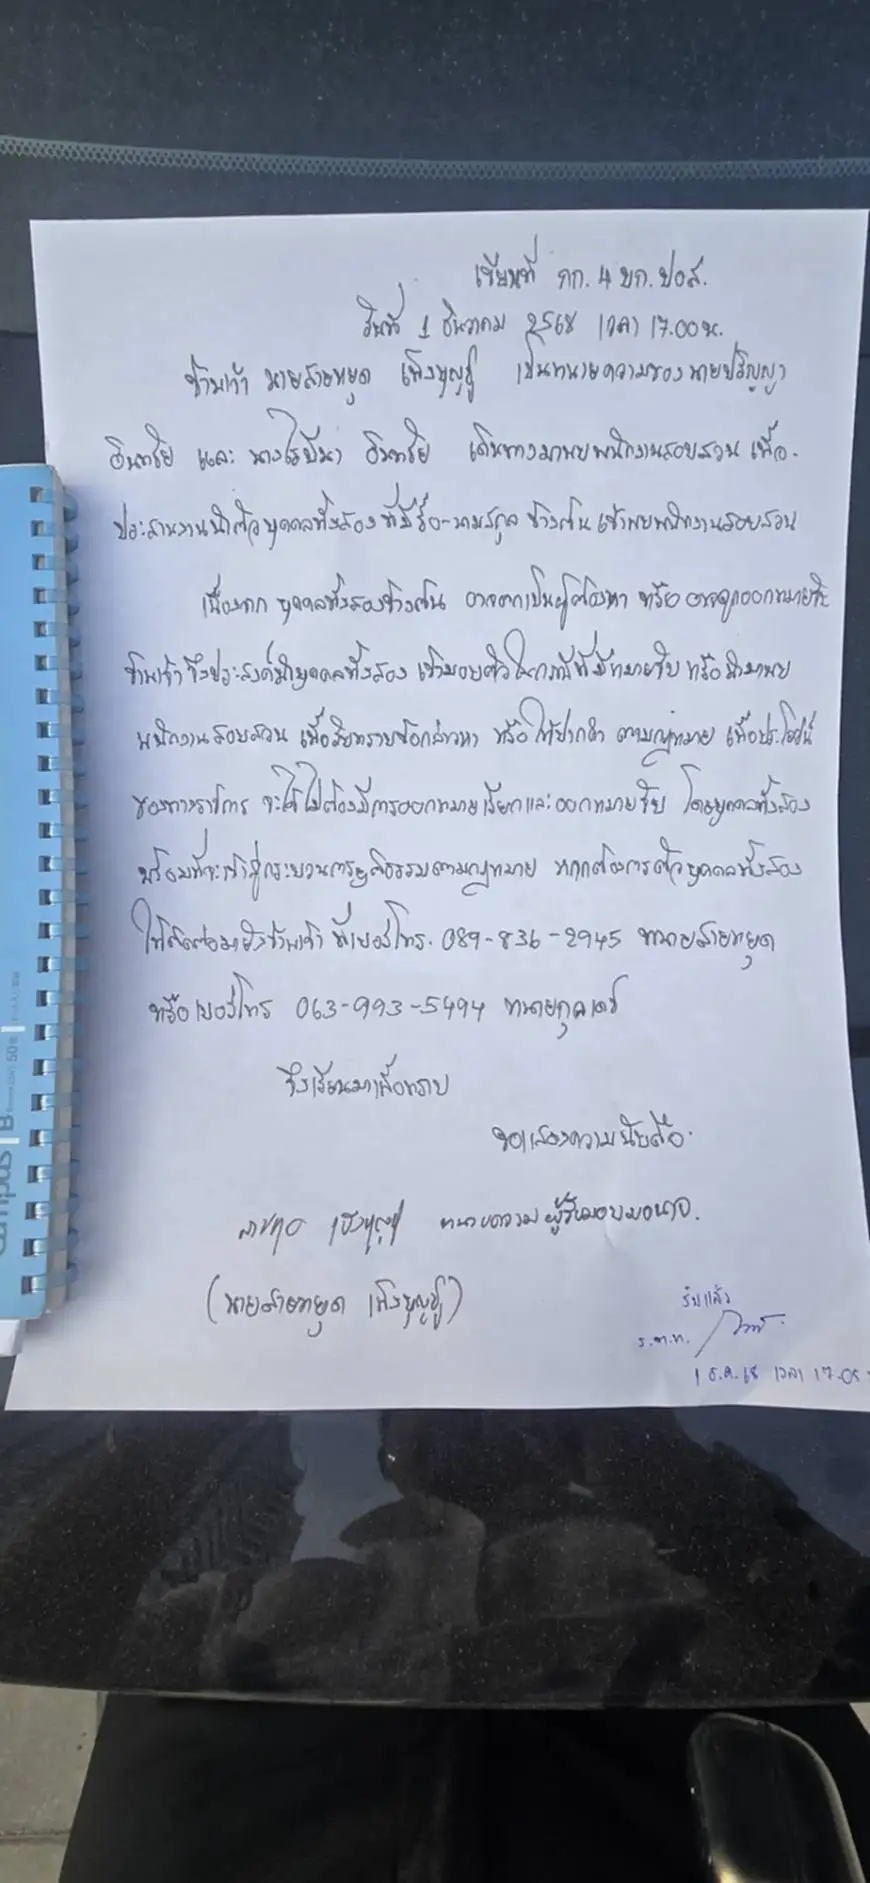 เขียนที่ กก. 4 บก.ปอศ.
วันที่ 1 ธันวาคม 2568 เวลา 17.00 น.
ข้าพเจ้า นายสายหยุด เพ็งบุญชู เป็นทนายความของ นายปริญญา
อินทรีย์ และ อินทรีย์ เดินทางมาพบพนักงานสอบสวน เพื่อ
ประสานงานนำตัวบุคคลทั้งสอง ที่มีชื่อ-นามสกุล ข้างต้น เข้าพบพนักงานสอบสวน
เนื่องจาก บุคคลทั้งสองข้างต้น อาจตกเป็นผู้ต้องหา หรือ อาจถูกออกหมายจับ
ข้าพเจ้า จึงประสงค์นำบุคคลทั้งสอง เข้ามอบตัวในกรณีที่มีหมายจับ หรือนำมาพบ
พนักงานสอบสวน เพื่อรับทราบข้อกล่าวหา หรือ ให้ปากคำ ตามกฎหมาย เพื่อประโยชน์
ของทางราชการ จะได้ไม่ต้องมีการออกหมายเรียกและออกหมายจับ โดยบุคคลทั้งสอง
พร้อมที่จะเข้าสู่กระบวนการยุติธรรมตามกฎหมาย หากต้องการตัวบุคคลทั้งสอง
ให้ติดต่อมายังข้าพเจ้า ที่เบอร์โทร. 089-836-2945 ทนายสายหยุด
หรือเบอร์โทร 063-993-5494 ทนายกุลเดช
จึงเรียนมาเพื่อทราบ
ขอแสดงความนับถือ
สายหยุด เพ็งบุญชู ทนายความ ผู้รับมอบอำนาจ.
(นายสายหยุด เพ็งบุญชู)
รับแล้ว
ร.ต.ท.
1 ธ.ค. 68 เวลา 17.05
Campus
B
50